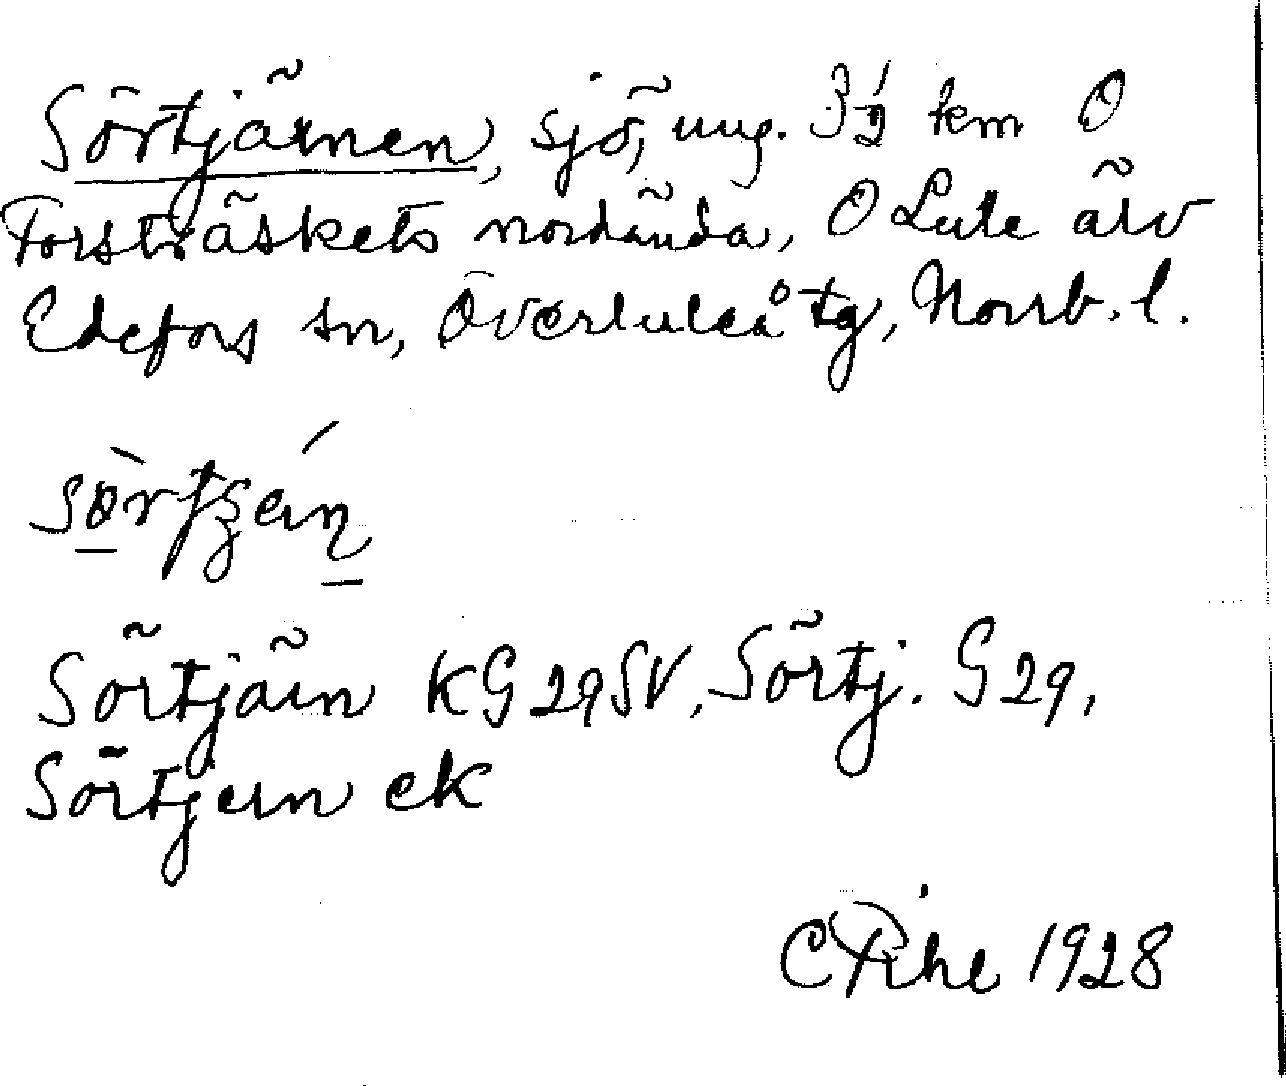 Sörtjärnen, sjö, ung. 3½ km O
Forsträskets nordända, O Lule älv
Edefors sn, Överluleå tg, Norrb. l.
Sörtjärn KG29SV, Sörtj. G29,
Sörtjern ek
C Pihl 1928